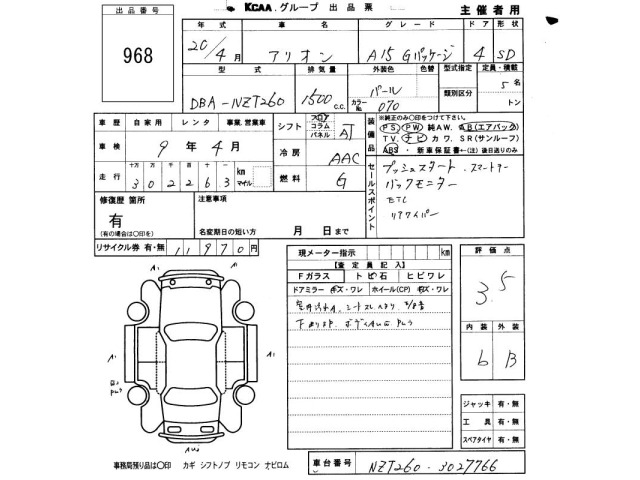 出品番号
KCAA.グループ 出品票
主催者用
968
年式 車名 グレード ドア 形状
20/4月 アリオン A15 Gパッケージ 4 SD
型式 排気量 外装色 色替 型式指定 定員・積載
DBA-NZT260 1500 c.c. パール カラーNo. 070 類別区分 5名
トン
車歴 自家用 レンタ 事業.営業車
シフト フロア コラム パネル AT
装備品
※純正のみ〇印をつけて下さい。
PS PW 純AW. AB(エアバック)
TV. ナビ カワ. SR(サンルーフ)
ABS 新車保証書←(注)後日送りのみ
車検 9年4月
冷房 AAC
走行 十万 万 千 百 十 km マイル
302263
燃料 G
セールスポイント
プッシュスタート.スマートキー
バックモニター
ETC
リアワイパー
修復歴 箇所
有
(有の場合は〇印を)
注意事項
名変期日の短い方 月 日まで
リサイクル券 有・無 11970円
現メーター指示 km
【査定員記入】
Fガラス トビ石 ヒビワレ
ドアミラー キズ・ワレ ホイール(CP) キズ・ワレ
評価点
3.5
内装 外装
6 B
ジャッキ 有・無
工具 有・無
スペアタイヤ 有・無
事務局預り品は〇印 カギ シフトノブ リモコン ナビロム
車台番号 NZT260-3027766